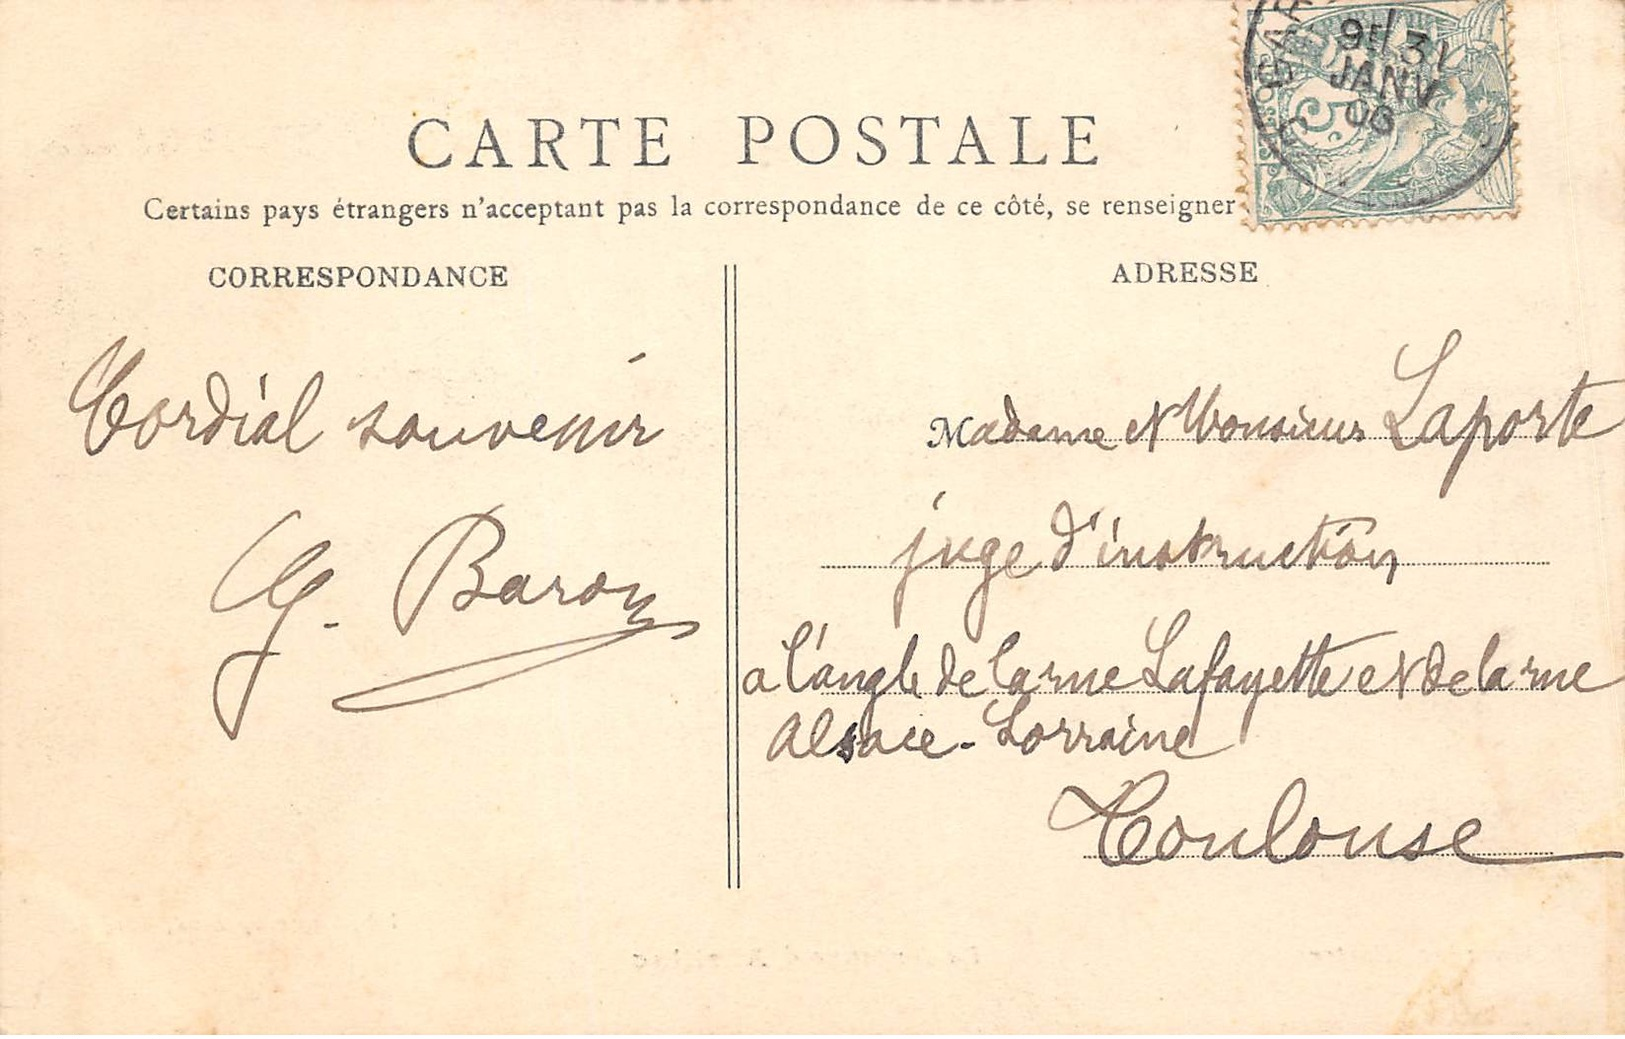 CARTE POSTALE
Certains pays étrangers n'acceptant pas la correspondance de ce côté, se renseigner
CORRESPONDANCE
Cordial souvenir
G. Baron
ADRESSE
Madame et Monsieur Laporte
juge d'instruction
a l'angle de la rue Lafayette et de la rue
Alsace-Lorraine
Toulouse
31
JANV
5